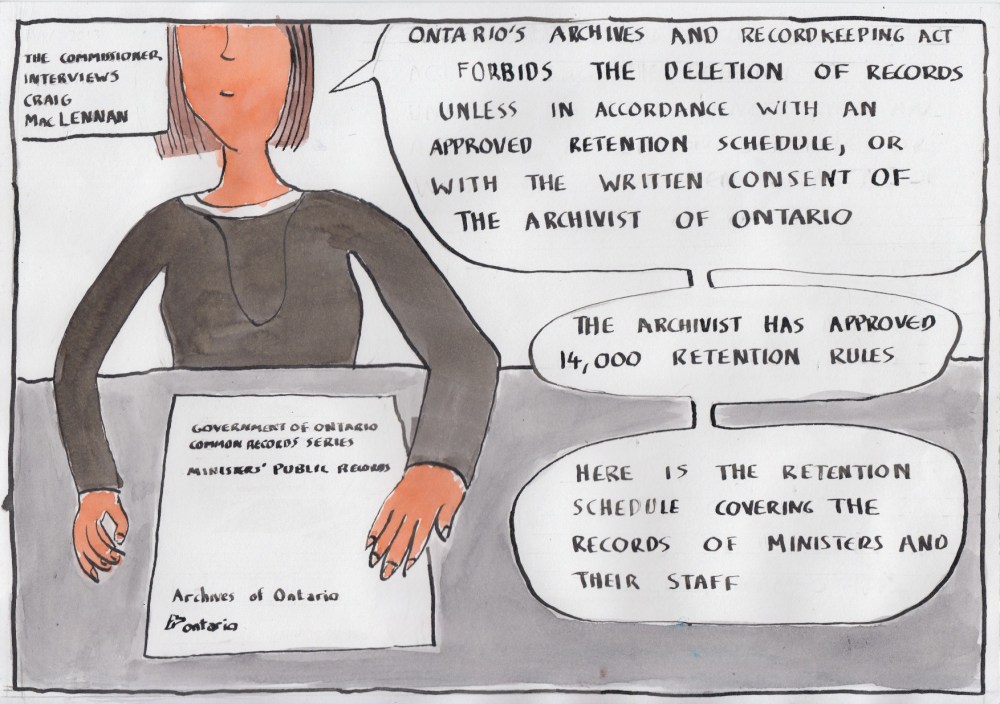 THE COMMISSIONER
INTERVIEWS
CRAIG
MACLENNAN
ONTARIO'S ARCHIVES AND RECORDKEEPING ACT
FORBIDS THE DELETION OF RECORDS
UNLESS IN ACCORDANCE WITH AN
APPROVED RETENTION SCHEDULE, OR
WITH THE WRITTEN CONSENT OF
THE ARCHIVIST OF ONTARIO
THE ARCHIVIST HAS APPROVED
14,000 RETENTION RULES
HERE IS THE RETENTION
SCHEDULE COVERING THE
RECORDS OF MINISTERS AND
THEIR STAFF
GOVERNMENT OF ONTARIO
COMMON RECORDS SERIES
MINISTERS' PUBLIC RECORDS
Archives of Ontario
Ontario